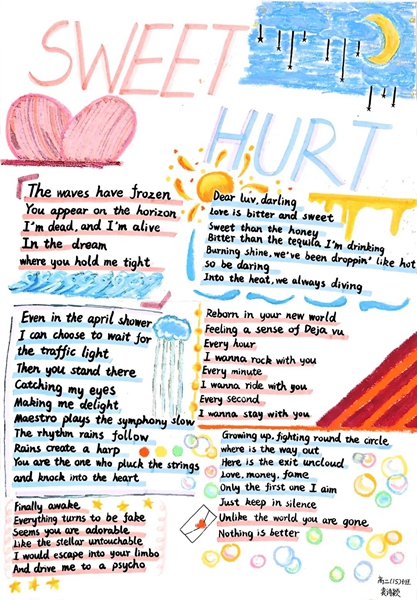 SWEET
HURT
The waves have frozen
You appear on the horizon
I'm dead, and I'm alive
In the dream
where you hold me tight
Dear luv, darling
Love is bitter and sweet
Sweet than the honey
Bitter than the tequila I'm drinking
Burning shine, we've been droppin' like hot
so be daring
Into the heat, we always diving
Even in the april shower
I can choose to wait for
the traffic light
Then you stand there
Catching my eyes
Making me delight
Maestro plays the symphony slow
The rhythm rains follow
Rains create a harp
You are the one who pluck the strings
and knock into the heart
Reborn in your new world
Feeling a sense of Deja vu
Every hour
I wanna rock with you
Every minute
I wanna ride with you
Every second
I wanna stay with you
Growing up, fighting round the circle
where is the way out
Here is the exit uncloud
Love, money, fame
Only the first one I aim
Just keep in silence
Unlike the world you are gone
Nothing is better
Finally awake
Everything turns to be fake
Seems you are adorable
Like the stellar untouchable
I would escape into your limbo
And drive me to a psycho
高二(15)班